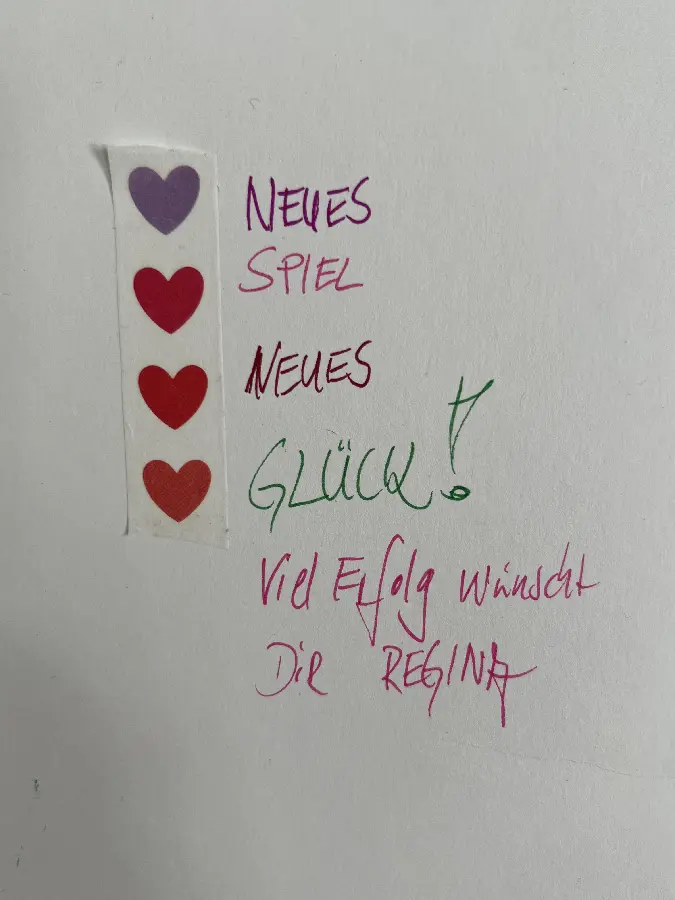 NEUES
SPIEL
NEUES
GLÜCK!
Viel Erfolg wünscht
Dir REGINA